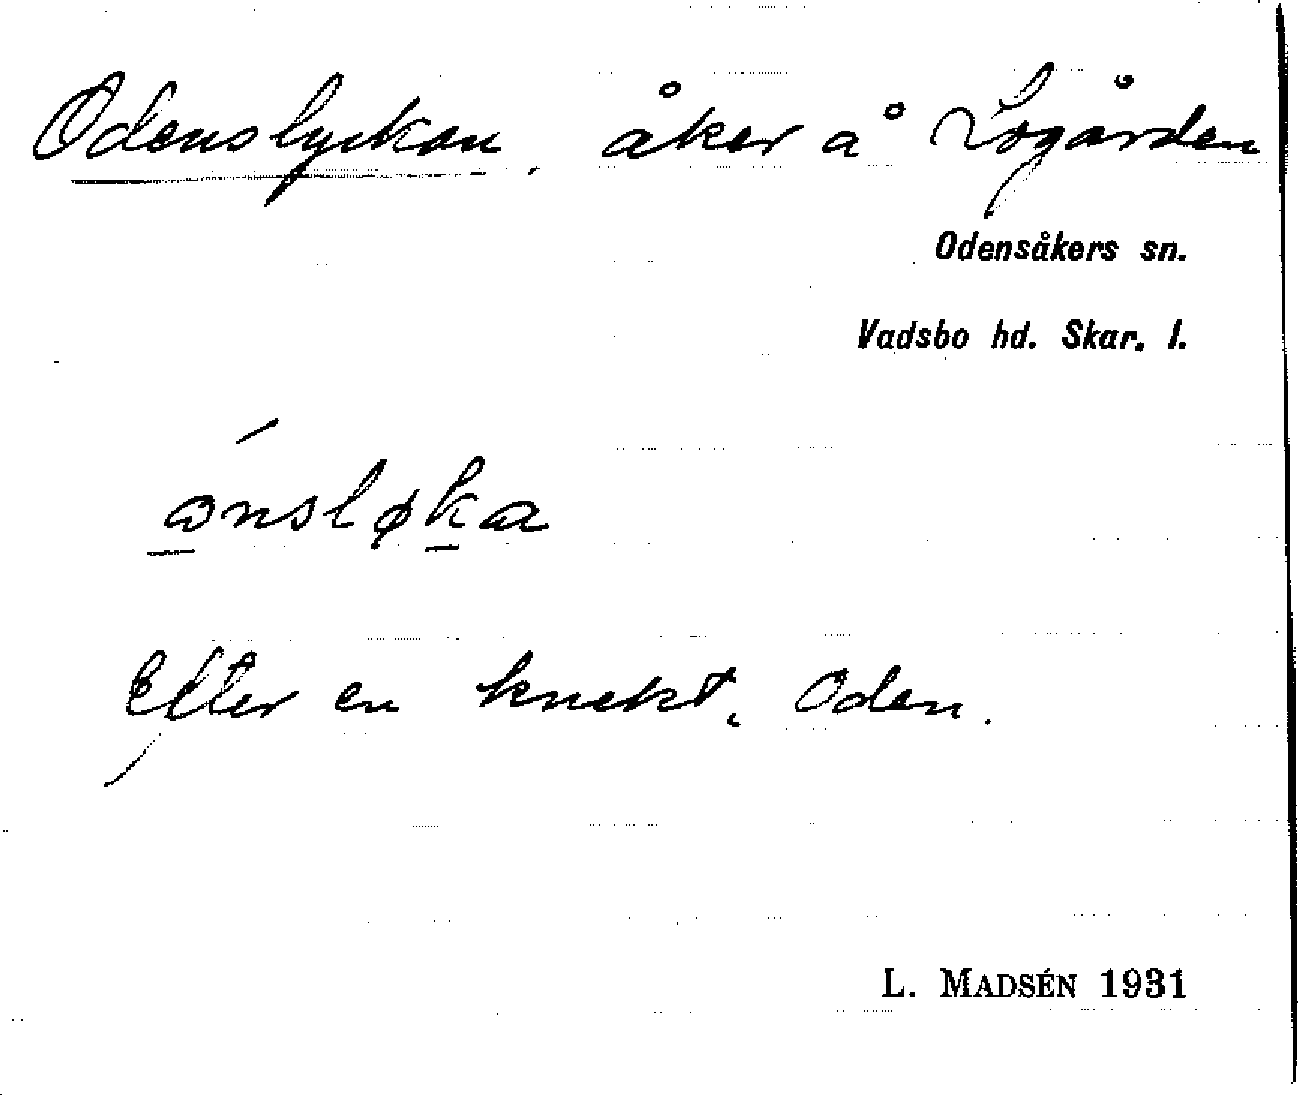 Odenslyckan, åker å Logården
Odensåkers sn.
Vadsbo hd. Skar. l.
ónsløka
Efter en knekt, Oden.
L. MADSÉN 1931